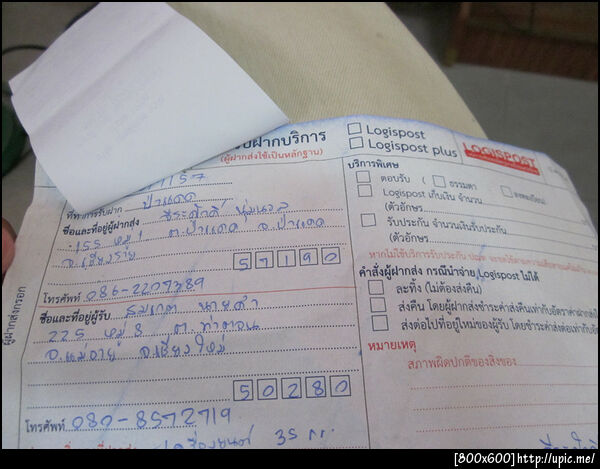 บฝากบริการ
(ผู้ฝากส่งใช้เป็นหลักฐาน)
Logispost
Logispost plus
LOGISPOST
ที่ทำการรับฝาก ป่าแดด
ชื่อและที่อยู่ผู้ฝากส่ง
155 หมู่ 1 ต.ป่าแดด อ.ป่าแดด
จ.เชียงราย
57190
โทรศัพท์ 086-2207389
ชื่อและที่อยู่ผู้รับ
225 หมู่ 8 ต.ท่าตอน
อ.แม่อาย จ.เชียงใหม่
50280
โทรศัพท์ 080-8572719
35 กก.
ผู้ฝากส่งกรอก
บริการพิเศษ
ตอบรับ ( ธรรมดา ลงทะเบียน)
Logispost เก็บเงิน จำนวน
(ตัวอักษร
รับประกัน จำนวนเงินรับประกัน
(ตัวอักษร
หากไม่ใช้บริการรับประกัน ปณท
คำสั่งผู้ฝากส่ง กรณีนำจ่าย Logispost ไม่ได้
ละทิ้ง (ไม่ต้องส่งคืน)
ส่งคืน โดยผู้ฝากส่งชำระค่าส่งคืนเท่ากับอัตราค่าฝากส่ง
ส่งต่อไปที่อยู่ใหม่ของผู้รับ โดยชำระค่าส่งต่อเท่ากับ
หมายเหตุ
สภาพผิดปกติของสิ่งของ
[800x600]http://upic.me/